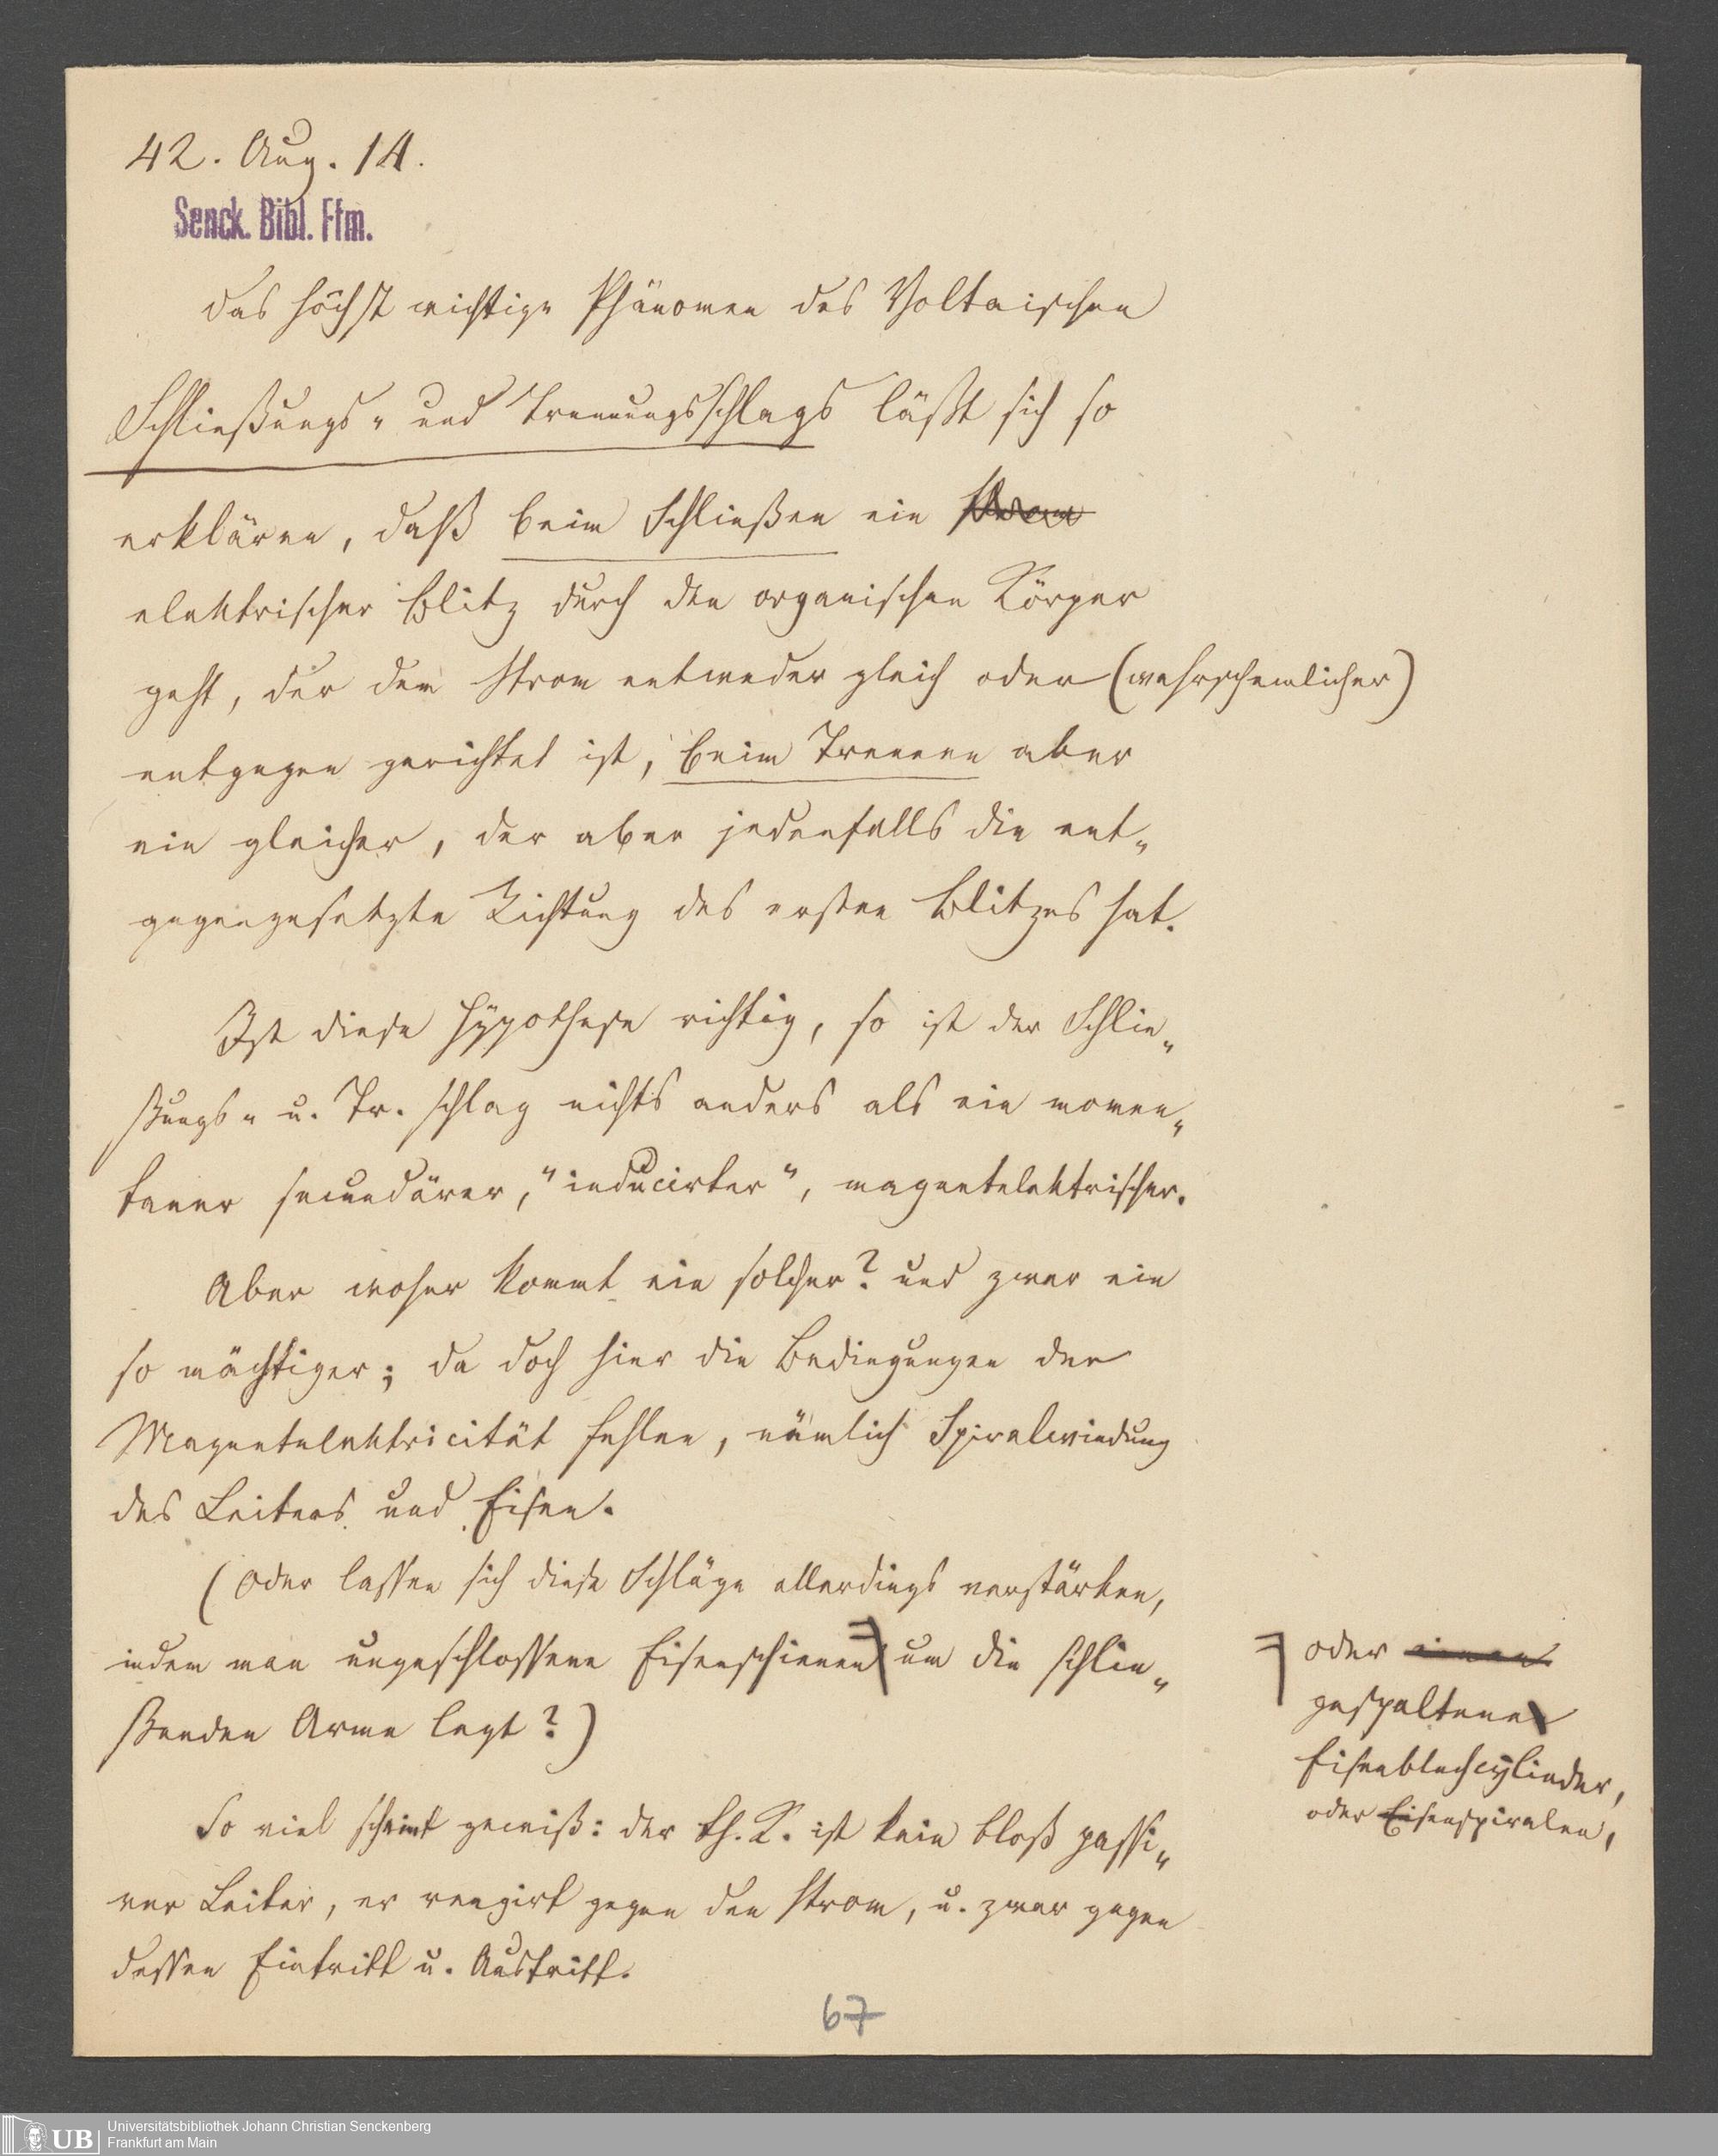 42. Aug. 14.
Senck. Bibl. Ffm.
das höchst wichtige Phänomen des Voltaischen
Schließungs- und Trennungsschlags läßt sich so
erklären, daß beim Schließen ein Strom
elektrischer Blitz durch den organischen Körper
geht, der dem Strom entweder gleich oder (wahrscheinlicher)
entgegen gerichtet ist, beim Trennen aber
ein gleicher, der aber jedenfalls die ent-
gegengesetzte Richtung des ersten Blitzes hat.
Ist diese Hypothese richtig, so ist der Schlie-
ßungs- u. Tr. schlag nichts anders als ein momen-
taner secundärer, "inducirter", magnetelektrischer.
Aber woher kommt ein solcher? und zwar ein
so mächtiger; da doch hier die Bedingungen der
Magnetelektricität fehlen, nämlich Spiralwindung
des Leiters und Eisen.
(Oder lassen sich diese Schläge allerdings verstärken,
indem man ungeschlossene Eisenschienen um die schlie-
ßenden Arme legt?)
oder einen
gespaltene
Eisenblechcylinder,
oder Eisenspiralen,
So viel scheint gewiß: der th. K. ist kein bloß passi-
ver Leiter, er reagirt gegen den Strom, u. zwar gegen
dessen Eintritt u. Austritt.
67
UB
Universitätsbibliothek Johann Christian Senckenberg
Frankfurt am Main